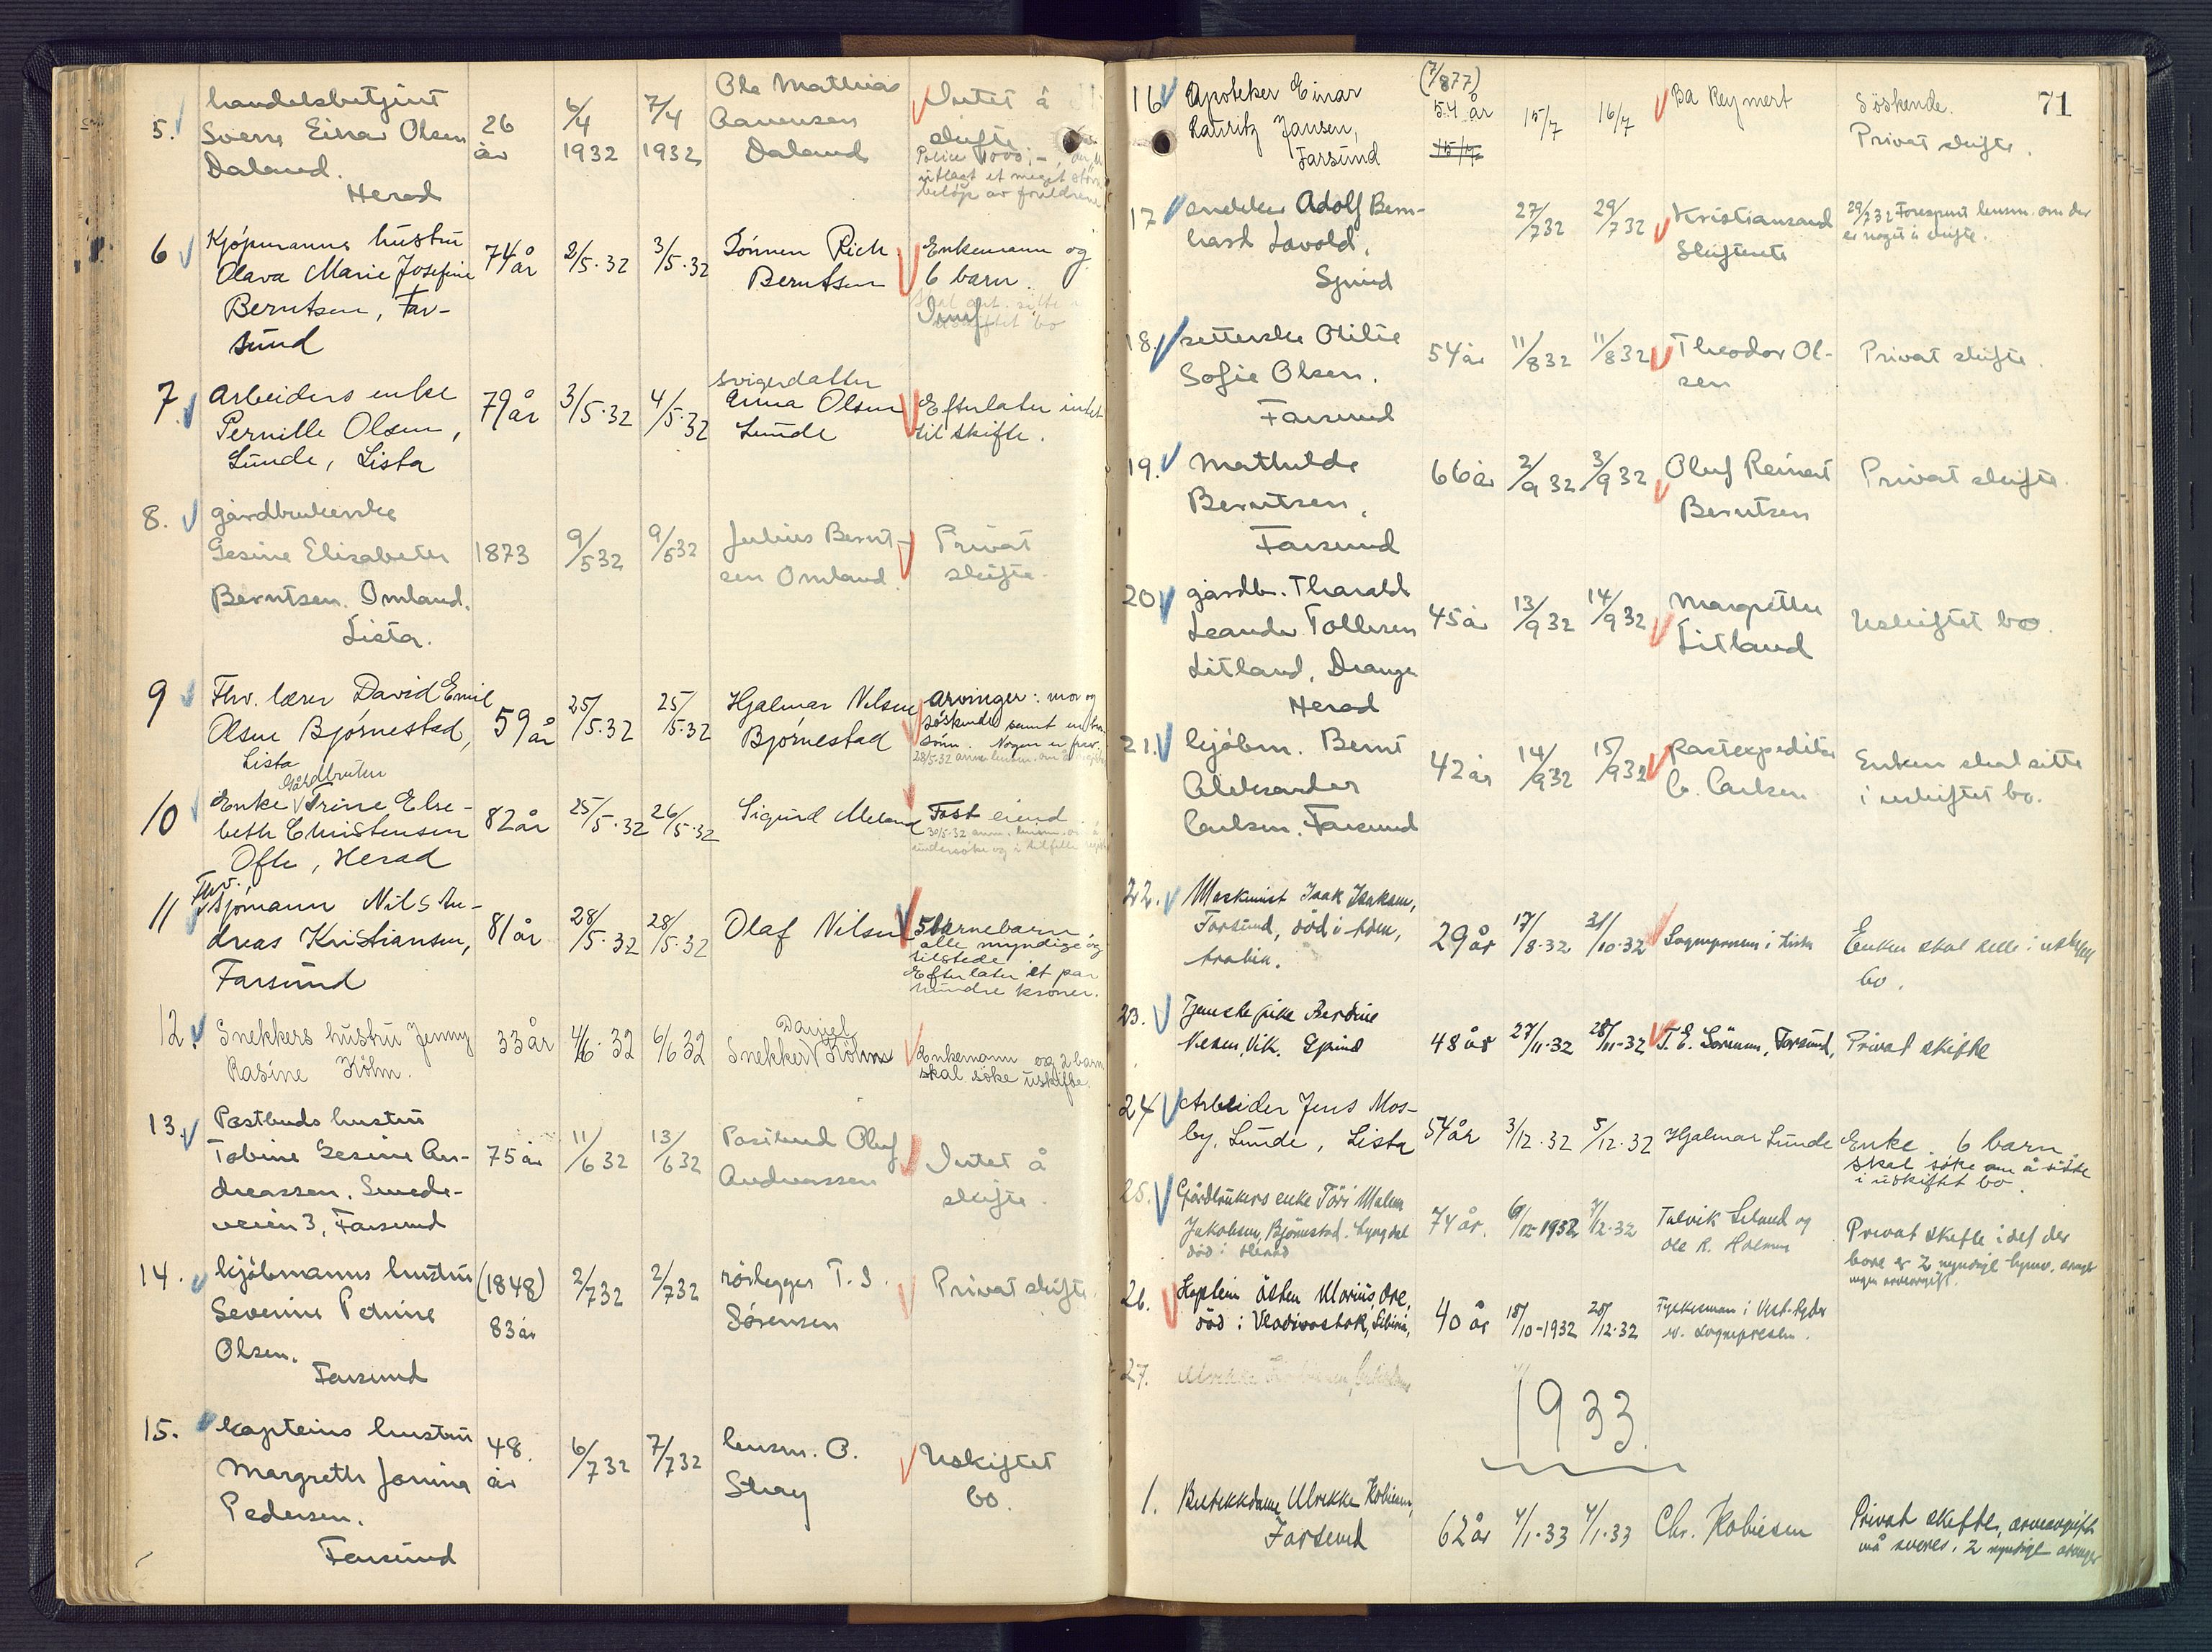 5. handelsbetjent
Sverre Einar Olsen
Daland.
Herad
26
år
6/4
1932
7/4
1932
Ole Mathias
Aanensen
Daland
Intet å
skifte
Police 1000,-
utlagt et meget større
beløp av foreldrene
6 Kjøpmanns hustru
Olava Marie Josefine
Berntsen, Far-
sund
74 år
2/5.32
3/5.32
Sønnen Rich.
Berntsen
Enkemann og
6 barn.
uskiftet bo
7. Arbeiders enke
Pernille Olsen,
Lunde, Lista
79 år
3/5.32
4/5.32
Svigerdatter
Anna Olsen
Lunde
Efterlater intet
til skifte.
8. gårdbrukerske
Gesine Elisabeth
Berntsen. Omland.
Lista.
1873
9/5 32
9/5 32
Julius Bernt-
sen Omland
Privat
skifte.
9 Fhv. lærer David Emil
Olsen Bjørnestad,
Lista
59 år
25/5.32
25/5.32
Hjalmar Nilsen
Bjørnestad
Arvinger: mor og
søskende samt en
sønn. Nogen er frav.
10 Gårdbruker
Enke Trine Else-
beth Christensen
Ofte, Herad
82 år
25/5.32
26/5.32
Sigurd Meland
Fast eiend.
undersøke og i tilfelle
11 Fhv.
sjømann Nils An-
dreas Kristiansen,
Farsund
81 år
28/5.32
28/5.32
Olaf Nilsen
5 barnebarn,
alle myndige og
tilstede.
Efterlater et par
hundre kroner.
12. Snekkers hustru Jenny
Rasine Holm.
33 år
4/6.32
6/6 32
Daniel
Snekker Holm
Enkemann og 2 barn
skal søke uskifte.
13. Postbuds hustru
Tobine Gesine An-
dreassen. Smede-
veien 3, Farsund
75 år
11/6 32
13/6 32
Postbud Oluf
Andreassen
Intet å
skifte.
14. kjøbmanns hustru
Severine Petrine
Olsen.
Farsund
(1848)
83 år
2/7 32
2/7 32
rørlegger T. S.
Sørensen
Privat skifte.
15. kapteins hustru
Margreth Janina
Pedersen.
Farsund
48
år
6/7 32
7/7 32
lensm. O.
Stray
Uskiftet
bo.
71
16 Apoteker Einar
Lauritz Jansen,
Farsund
(7/877)
54 år
15/7
16/7
Ba Reymert
Søskende.
Privat skifte.
17 snekker Adolf Bern-
hard Lavold.
Spind
27/7 32
29/7 32
Kristiansand
Skifterett
29/7 32 Forespurt lensm. om der
er noget å skifte.
18. setterske Otilie
Sofie Olsen.
Farsund
54 år
11/8 32
11/8 32
Theodor Ol-
sen
Privat skifte.
19. Mathilde
Berntsen.
Farsund
66 år
2/9 32
3/9 32
Oluf Reinert
Berntsen
Privat skifte.
20 gårdbr. Tharald
Leander Tollesen
Litland, Drange
Herad
45 år
13/9 32
14/9 32
Margrethe
Litland
Uskiftet bo.
21. kjøbm. Bernt
Aleksander
Carlsen. Farsund
42 år
14/9 32
15/9 32
Postexpeditør
C. Carlsen
Enken skal sitte
i uskiftet bo.
22. Maskinist Isak Isaksen,
Farsund, død i Aden,
Arabia.
29 år
17/8.32
31/10.32
Sognepresten i Lista
Enken skal sitte i uskiftet
bo.
23. Tjenestepike Berdine
Nesen, Vik. Spind
48 år
27/11-32
28/11-32
T. E. Sørensen, Farsund,
Privat skifte
24 Arbeider Jens Mos-
by, Lunde, Lista
54 år
3/12.32
5/12.32
Hjalmar Lunde
Enke. 6 barn.
Skal søke om å sitte
i uskiftet bo.
25. Gårdbrukers enke Tøri Malena
Jakobsen, Bjørnestad. Lyngdal
død i Herad
74 år.
6/12-1932
7/12.32
Talvik Seland og
Ole R.
Privat skifte idet der
bare er 2 myndige
ingen arveavgift.
26. Kaptein Østen Marius Ore,
død i Vladivostok, Sibiria,
40 år
18/10-1932
28/12.32
Fylkesmann i Vest-Agder
sogneprest.
27.
1933.
1. Butikkdame Ulrikke Kobiesen,
Farsund
62 år
4/1.33
4/1.33
Chr. Kobiesen
Privat skifte, arveavgift
må svares, 2 myndige arvinger